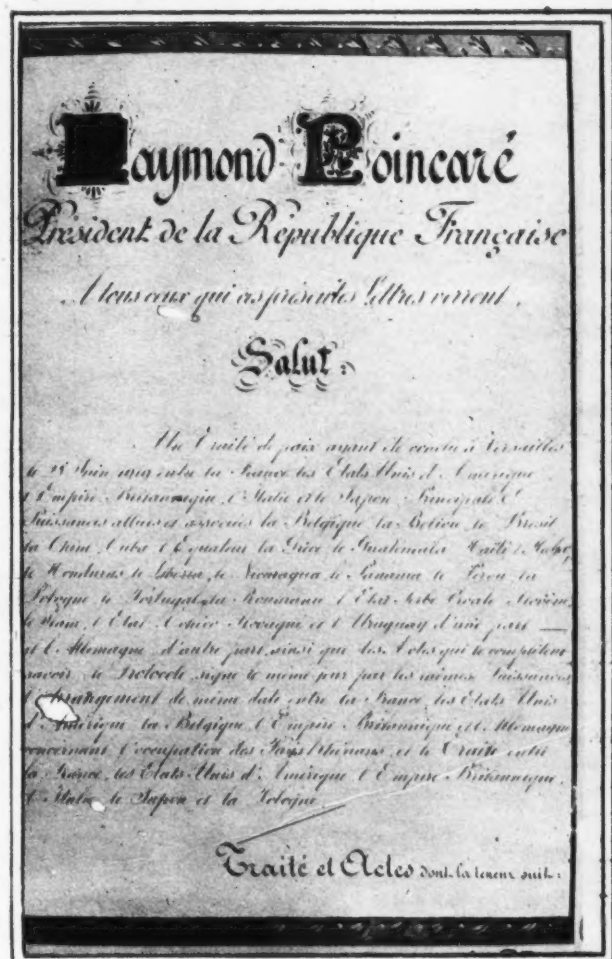 Raymond Poincaré
Président de la République Française
A tous ceux qui ces présentes Lettres verront,
Salut:
Un Traité de paix ayant été conclu à Versailles
le 28 Juin 1919 entre la France les Etats Unis d'Amérique
l'Empire Britannique, l'Italie et le Japon Principales
Puissances alliées et associées la Belgique la Bolivie, le Brésil
la Chine, Cuba l'Equateur la Grèce le Guatemala Haïti l'Hedjaz,
le Honduras le Libéria, le Nicaragua le Panama le Pérou la
Pologne le Portugal, la Roumanie l'Etat Serbe Croate Slovène,
le Siam, l'Etat Tchéco Slovaque et l'Uruguay d'une part —
et l'Allemagne d'autre part, ainsi que les Actes qui le complètent
savoir le Protocole signé le même jour par les mêmes Puissances
l'Arrangement de même date entre la France, les Etats Unis
d'Amérique la Belgique l'Empire Britannique et l'Allemagne
concernant l'occupation des Pays Rhénans, et le Traité entre
la France, les Etats Unis d'Amérique l'Empire Britannique,
l'Italie le Japon et la Pologne
Traité et Actes dont la teneur suit: